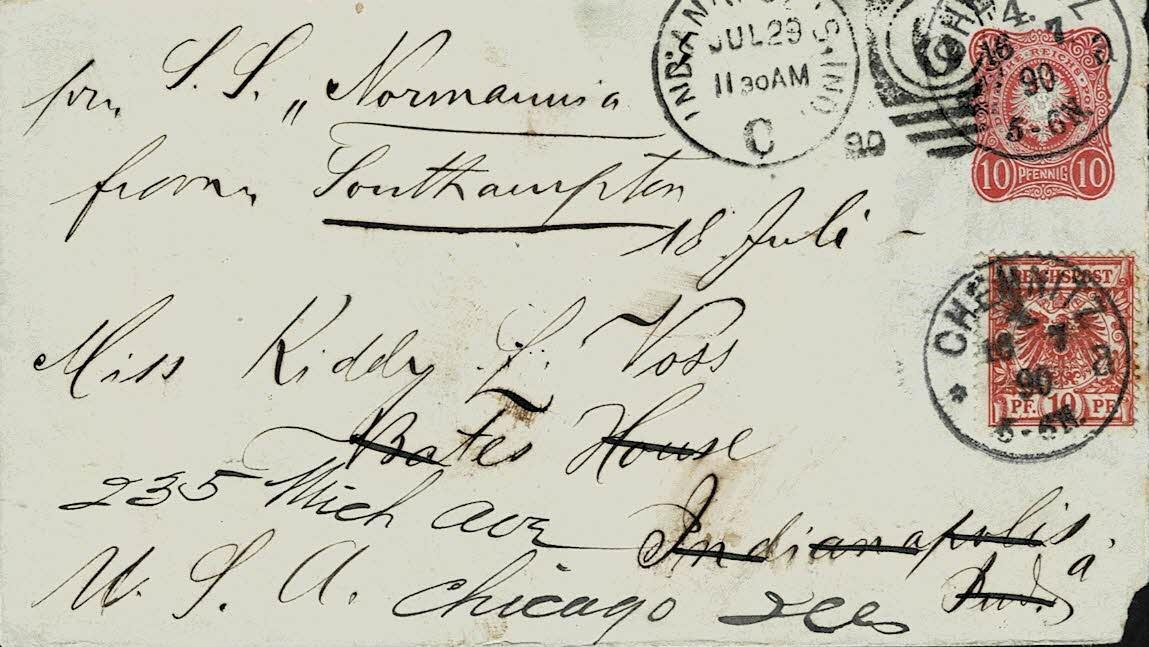 per S. S. „Normannia
from Southampton
18 Juli –
Miss Kiddy L. Voss
Bates House
235 Mich Ave Indianapolis
U. S. A. Chicago Ills Ind.
INDIANAPOLIS, IND.
JUL 29
11 30 AM
C
90
CHEMNITZ
4.
16 7
90
a
5-6N.
10 PFENNIG 10
REICHSPOST
CHEMNITZ
16 7
90
a
5-6N.
PF. 10 PF.